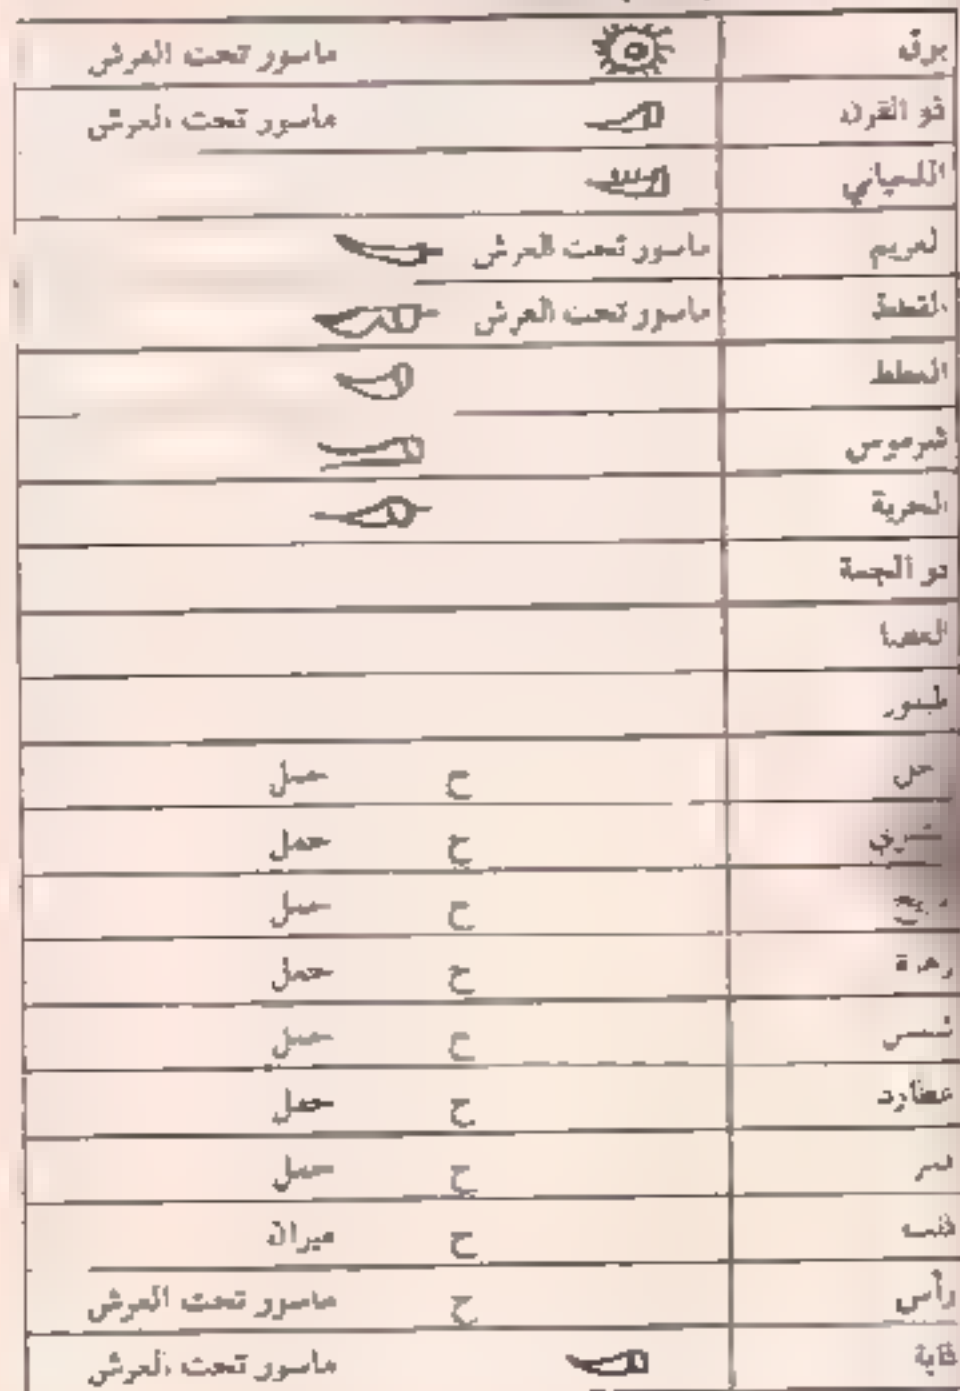 برق ماسور تحت العرش
ذو القرن ماسور تحت العرش
اللحياني
لعريم ماسور تحت العرش
ماسور تحت العرش

شرموس
الحربة
ذو الجمة
العصا
طينور
ح حمل
ح حمل
ح حمل
زهرة ح حمل
شمس ح حمل
عطارد ح حمل
ح حمل
ح ميزان
رأس ح ماسور تحت العرش
ماسور تحت العرش